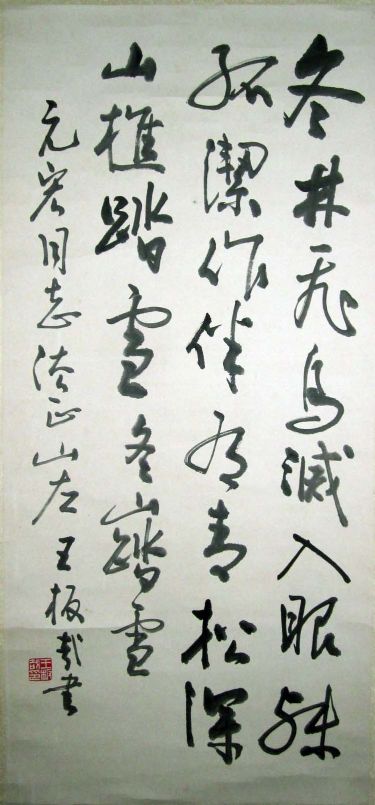 冬林飛鳥滅入眼殊
孤潔作伴有青松深
山樵踏雪冬山踏雪
元宏同志法正山左王板哉书